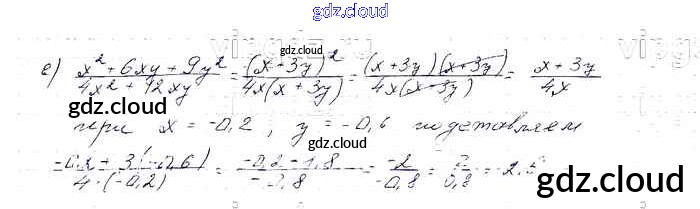 gdz.cloud
е) (x² + 6xy + 9y²)/(4x² + 12xy) = (x + 3y)²/(4x(x + 3y)) = (x + 3y)(x + 3y)/(4x(x + 3y)) = (x + 3y)/(4x)
gdz.cloud
gdz.cloud gdz.cloud
при x = -0,2, y = -0,6 подставляем
gdz.cloud
(-0,2 + 3(-0,6))/(4·(-0,2)) = (-0,2 - 1,8)/(-0,8) = (-2)/(-0,8) = 2/0,8 = 2,5
gdz.cloud
gdz.cloud